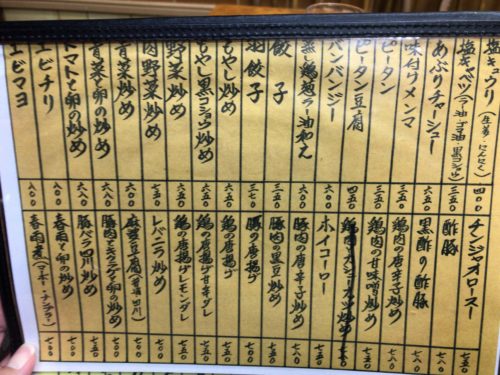 塩キュウリ(生姜・にんにく) 四〇〇
塩キャベツ(ラー油・ゴマ油・黒コショウ) 三五〇
あぶりチャーシュー 六五〇
味付けメンマ 三五〇
ピータン 三五〇
ピータン豆腐 四五〇
バンバンジー 六〇〇
蒸し鶏葱ラー油和え 六〇〇
餃子
羽餃子 三七〇
もやし炒め 六五〇
もやし黒コショウ炒め 六五〇
野菜炒め 六五〇
肉野菜炒め 七五〇
青菜炒め 六八〇
青菜と卵の炒め 六八〇
トマトと卵の炒め 六八〇
エビチリ 八〇〇
エビマヨ 八〇〇
チンジャオロースー 七五〇
酢豚 八五〇
黒酢の酢豚
鶏肉の唐辛子炒め 七八〇
鶏肉の甘味噌炒め 七五〇
鶏肉
ホイコーロー 七五〇
豚肉の唐辛子炒め
豚肉の黒豆炒め 七五〇
豚の唐揚げ 七〇〇
鶏の唐揚げ
鶏の唐揚げ甘辛ダレ 七五〇
鶏の唐揚げレモンダレ 七五〇
レバニラ炒め 七五〇
麻婆豆腐 七〇〇
豚肉とキクラゲと卵の炒め 七〇〇
豚バラ四川炒め 七五〇
春雨と卵の炒め 七〇〇
春雨煮(マーボー・チンプラ) 七〇〇